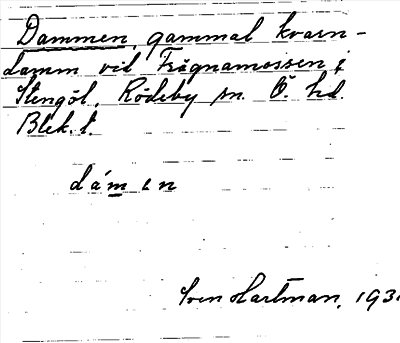 Dammen, gammal kvarn-
damm vid Frägnamossen i
Stengöl, Rödeby sn. Ö. hd.
Blek. l.
dámen
Sven Hartman, 193